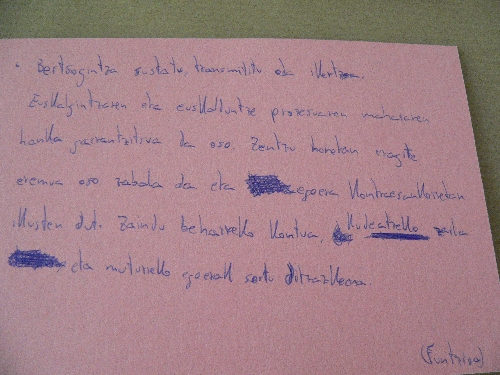 • Bertsogintza sustatu, transmititu eta ikertzea.
Euskalgintzaren eta euskalduntze prozesuaren mahaiaren
hanka garrantzitsua da oso. Zentzu horetan eragite
eremua oso zabala da eta egoera kontraesankorretan
ikusten dut. Zaindu beharreko kontua, kudeatzeko zaila
eta muturreko egoerak sortu ditzazkeena.
(Funtzioa)